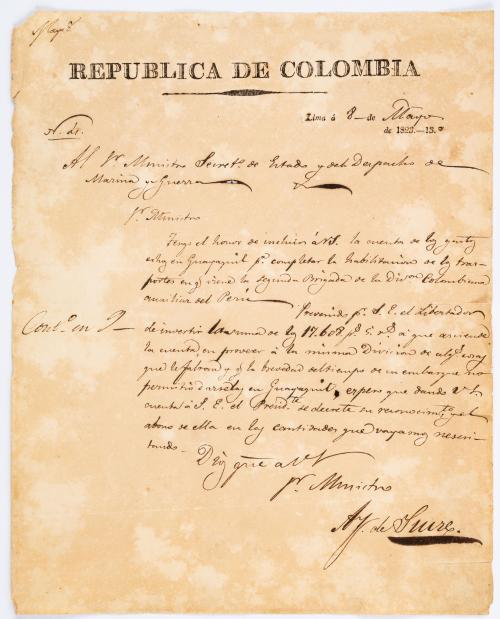 Mayo 8
REPUBLICA DE COLOMBIA
Lima á 8 de Mayo
de 1823.—13.º
N. 41.
Al Sr. Ministro Secret.º de Estado y del Despacho de
Marina y Guerra
Sr. Ministro
Tengo el honor de incluir á VS. la cuenta de los gastos
en Guayaquil p.ª completar la habilitacion de los tras-
portes en q.e viene la segunda Brigada de la Div.on Colombiana
auxiliar del Perú
Prevenido p.r S. E. el Libertador
Cont.º en 9
de invertir la suma de los 17.608 p.s 5 r.s á que asciende
la cuenta en proveer á la misma Division de
que le faltan y q.e la brevedad del tiempo de su embarque no
permitió darselas en Guayaquil, espero que dando VS.
cuenta á S. E. el Presid.te se decrete su reconocim.to y el
abono de ella en las cantidades que vayamos necesi-
tando.
Dios gûe a VS
Sr. Ministro
A. J. de Sucre